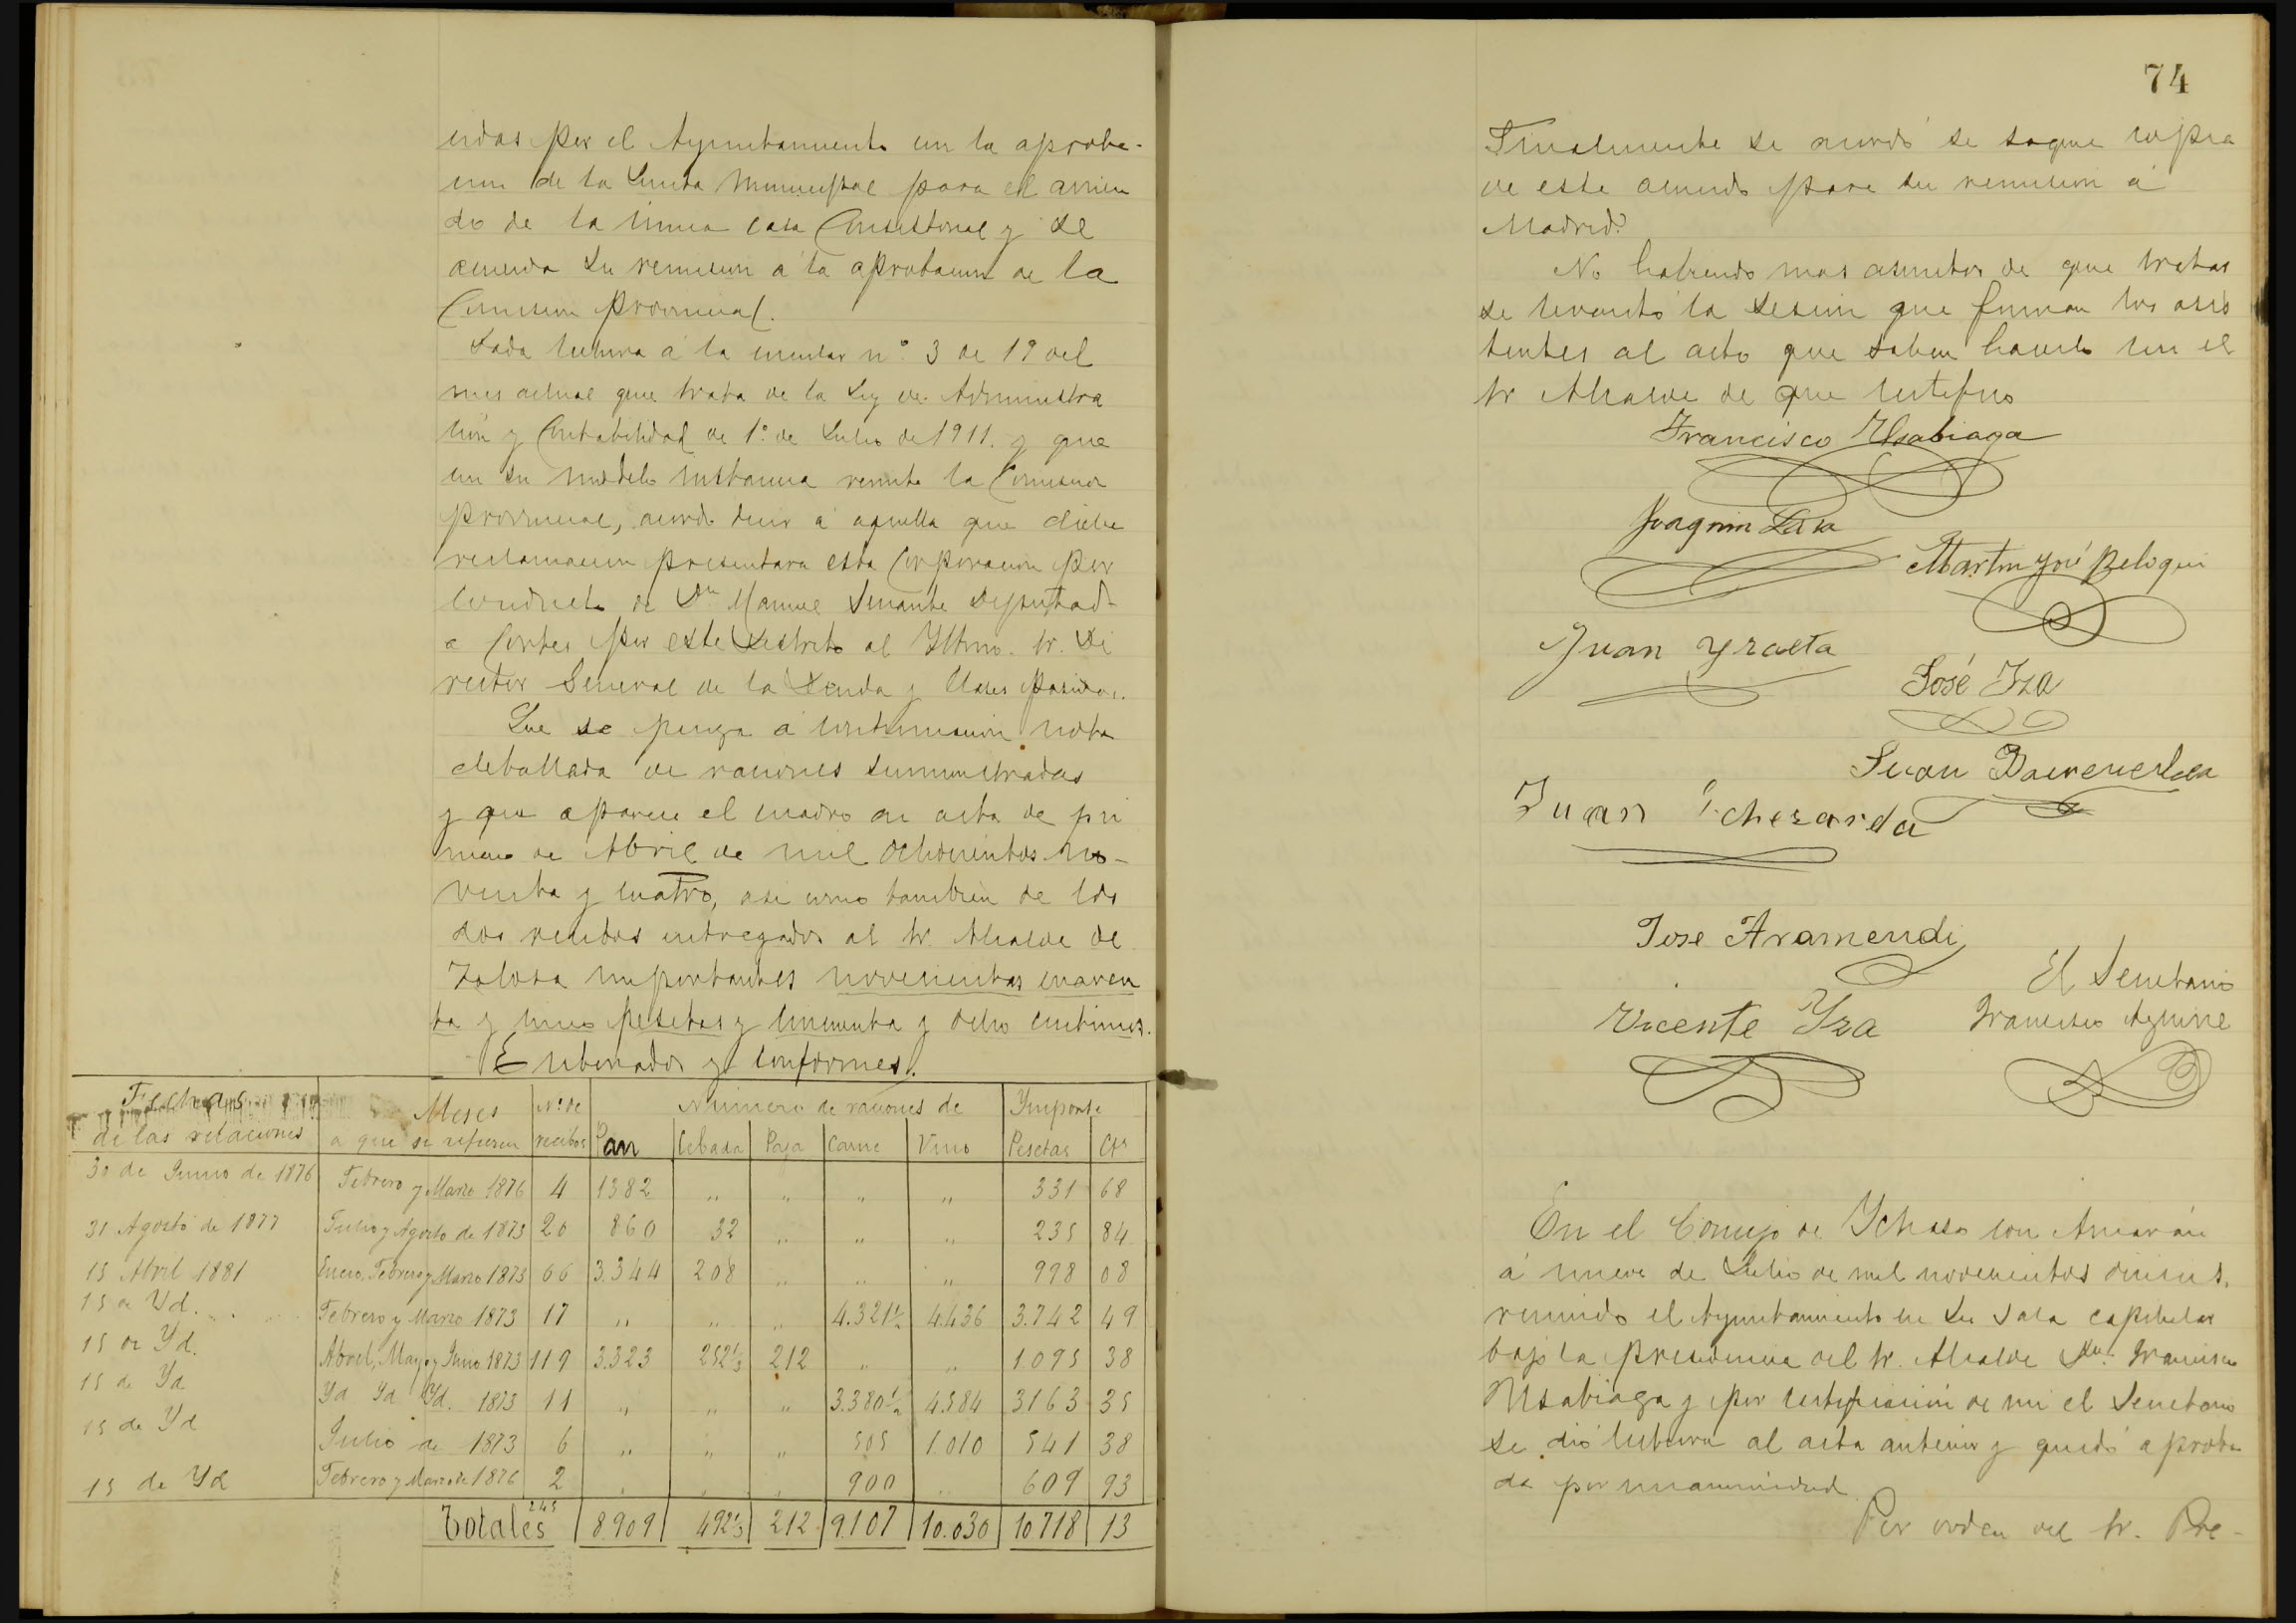 cidas por el Ayuntamiento con la aproba-
cion de la Junta Municipal para el arrien
do de la nueva casa Consistorial y se
acuerda su remision á la aprobacion de la
Comision provincial.
Dada lectura á la circular nº 3 de 19 del
mes actual que trata de la Ley de Administra
ción y Contabilidad de 1º de Julio de 1911. y que
con su modelo instancia remite la Comision
provincial, acordó decir á aquella que dicha
reclamacion presentara esta Corporacion por
conducto de Dn Manuel Senante Deputado
a Cortes por este Distrito al Yltmo. Sr. Di
rector General de la Deuda y Clases pasivas.
Que se ponga á continuación nota
detallada de raciones suministradas
y que aparece el cuadro en acta de pri
mero de Abril de mil ochocientos no-
venta y cuatro, asi como tambien de los
dos recibos entregados al Sr. Alcalde de
Tolosa importantes novecientas cuaren
ta y cinco pesetas y cincuenta y ocho centimos.
Enterados y conformes.
Fechas de las relaciones | Meses a que se refieren | Nº de recibos | Número de raciones de Pan | Cebada | Paja | Carne | Vino | Importe Pesetas | Cts
30 de Junio de 1876 | Febrero y Marzo 1876 | 4 | 1382 | ,, | ,, | ,, | ,, | 331 | 68
31 Agosto de 1877 | Julio y Agosto de 1873 | 20 | 860 | 32 | ,, | ,, | ,, | 235 | 84
15 Abril 1881 | Enero, Febrero y Marzo 1873 | 66 | 3.344 | 208 | ,, | ,, | ,, | 998 | 08
15 de Yd. | Febrero y Marzo 1873 | 17 | ,, | ,, | ,, | 4.321½ | 4.436 | 3.742 | 49
15 de Yd. | Abril, Mayo y Junio 1873 | 119 | 3.323 | 252⅓ | 212 | ,, | ,, | 1.095 | 38
15 de Yd | Yd Yd Yd. 1873 | 11 | ,, | ,, | ,, | 3.380½ | 4.584 | 3163 | 35
15 de Yd | Julio de 1873 | 6 | ,, | ,, | ,, | 505 | 1.010 | 541 | 38
15 de Yd | Febrero y Marzo de 1876 | 2 | ,, | ,, | ,, | 900 | ,, | 609 | 93
Totales | 245 | 8.909 | 492⅓ | 212 | 9.107 | 10.030 | 10.718 | 13
74
Finalmente se acordó se saque copia
de este acuerdo para su remision á
Madrid.
No habiendo mas asuntos de que tratar
se levantó la sesion que firman los asis
tentes al acto que saben hacerlo con el
Sr Alcalde de que certifico
Francisco Usabiaga
Joaquin Lasa
Martin José Beloqui
Juan Yraeta
José Iza
Juan
Juan Echezarda
Jose Aramendi
El Secretario
Vicente Yza
Francisco Aguirre
En el Concejo de Ychaso con Arriarán
á nueve de Julio de mil novecientos
reunido el Ayuntamiento en su sala capitular
bajo la presidencia del Sr. Alcalde Dn. Francisco
Usabiaga y por certificación de mi el Secretario
se dió lectura al acta anterior y quedó aproba
da por unanimidad
Por orden del Sr. Pre-